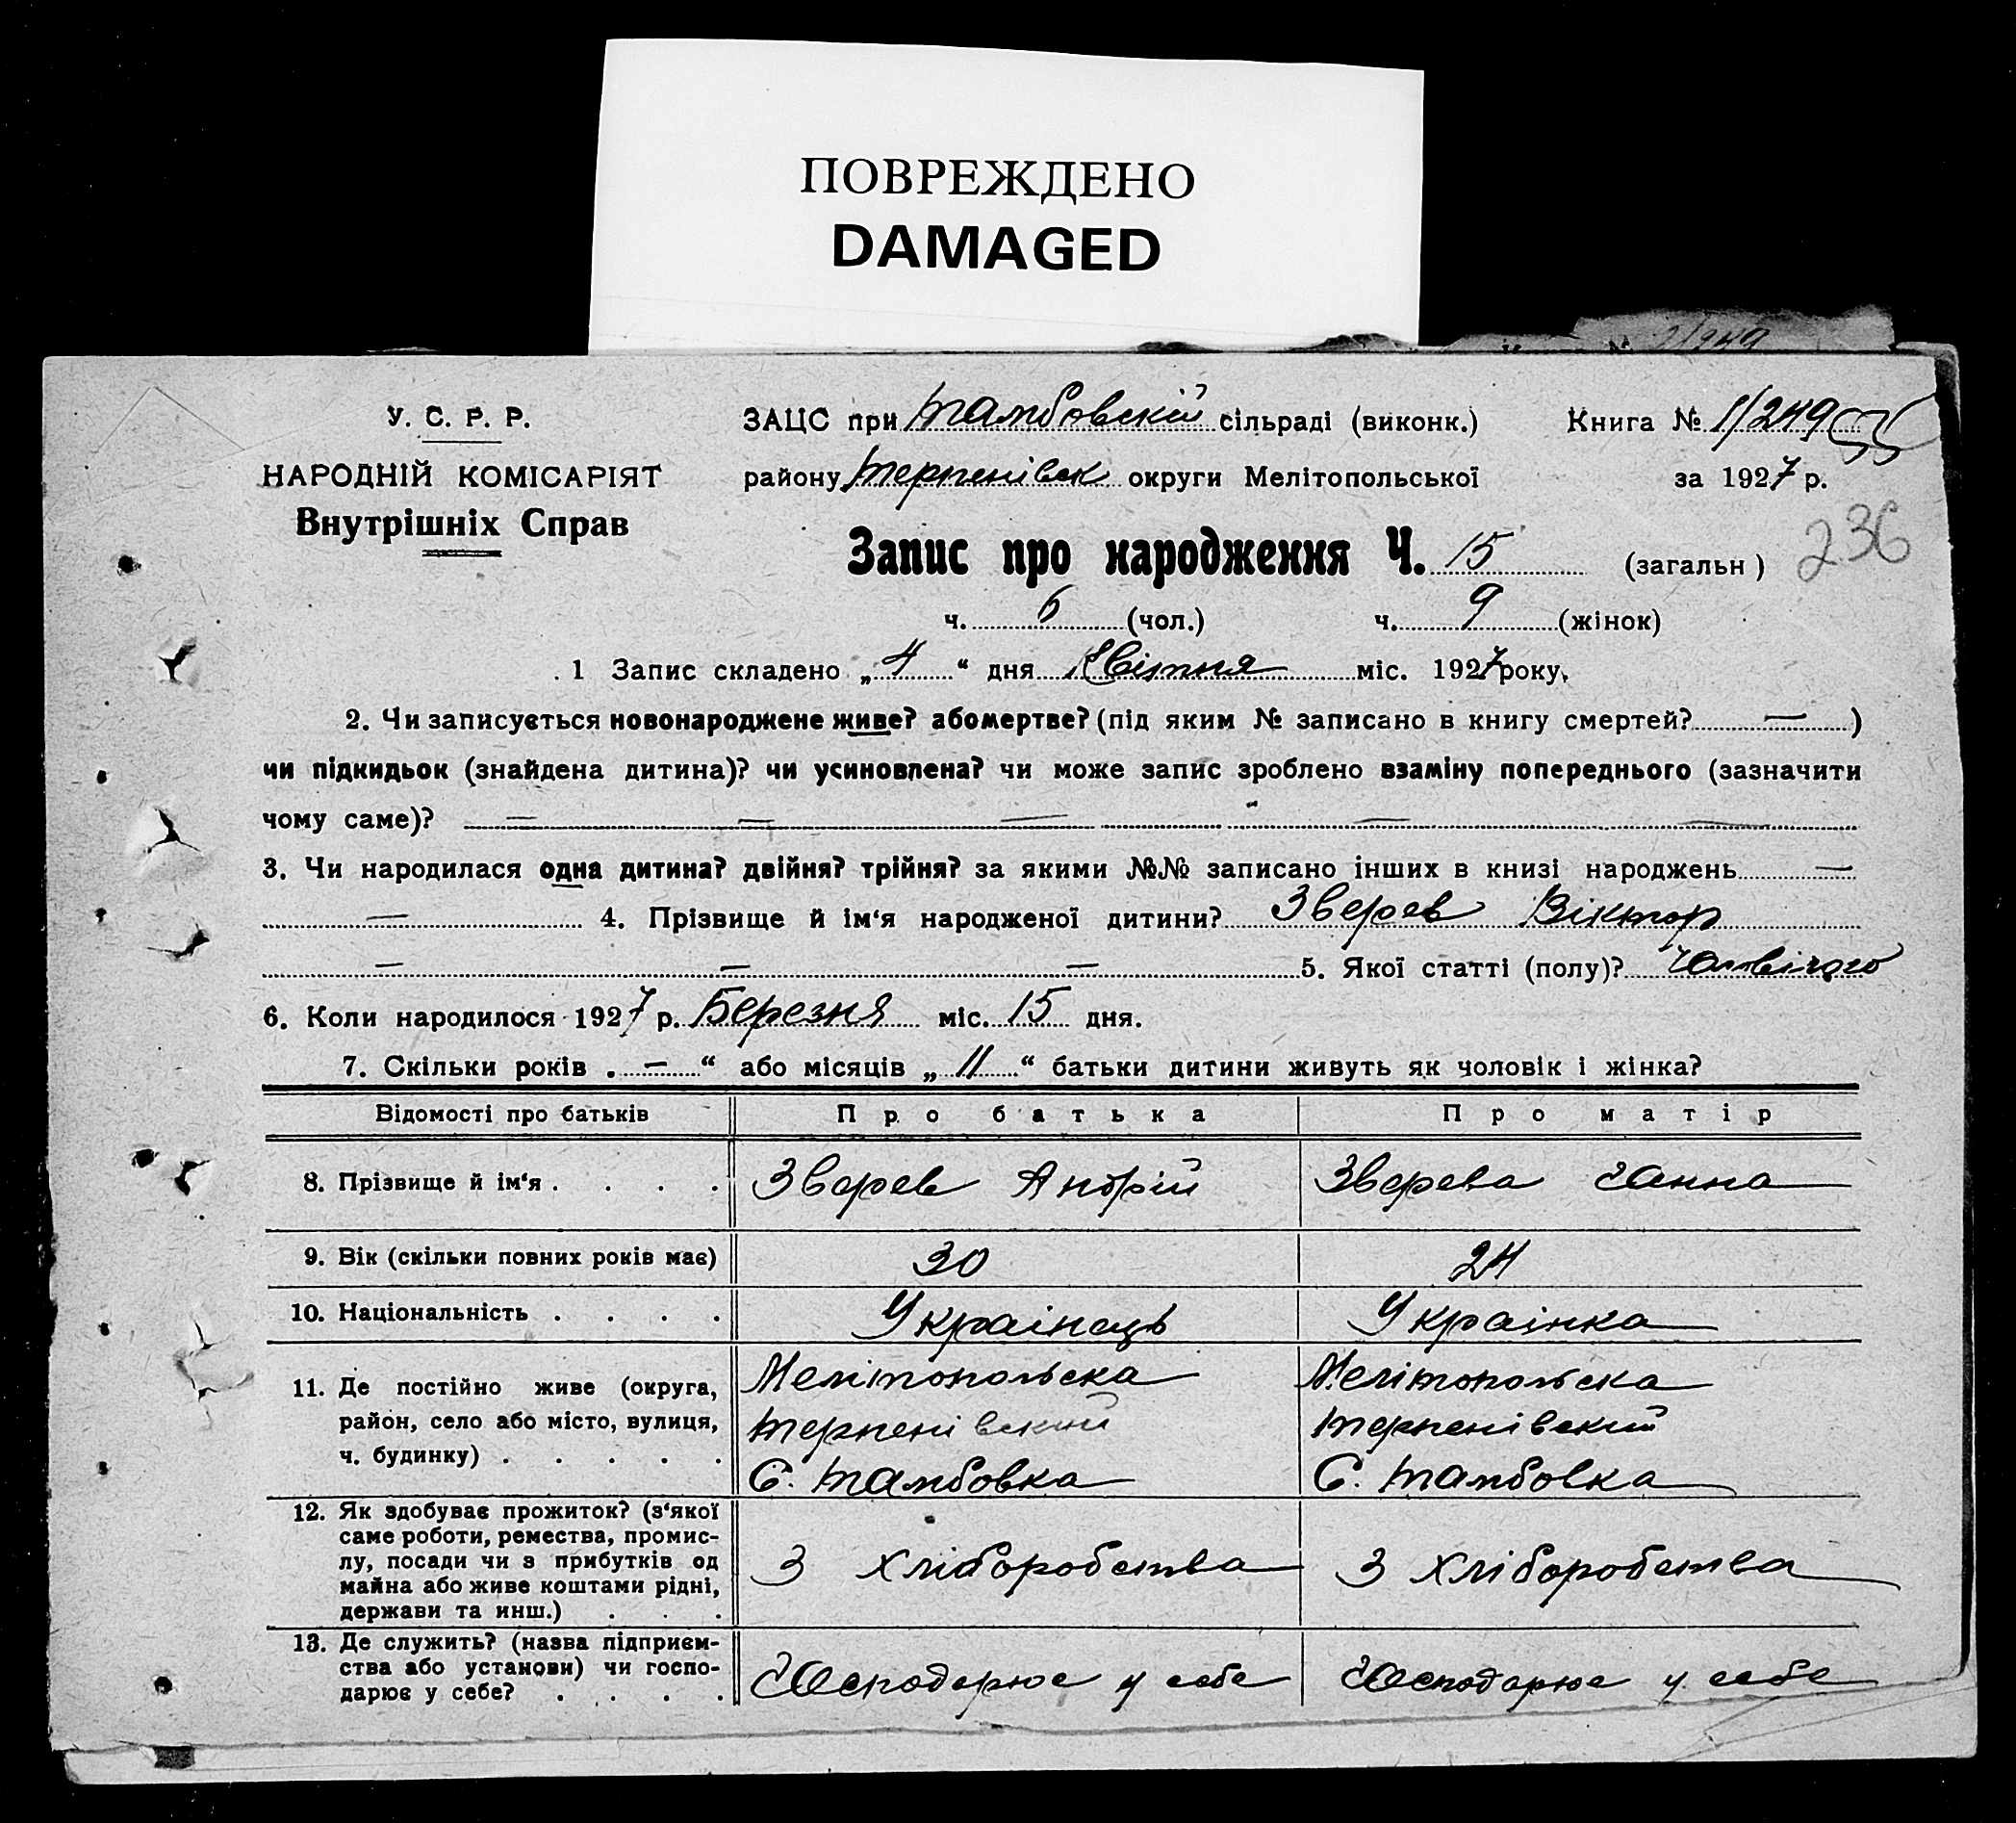 ПОВРЕЖДЕНО
DAMAGED
У. С. Р. Р.
НАРОДНІЙ КОМІСАРІЯТ
Внутрішніх Справ
ЗАЦС при Тамбовскій сільраді (виконк.)
Книга № 1/249
району Терпенівск округи Мелітопольської
за 1927 р.
236
Запис про народження Ч. 15 (загальн)
ч. 6 (чол.) ч. 9 (жінок)
1 Запис складено „4“ дня Квітня міс. 1927 року.
2. Чи записується новонароджене живе? або мертве? (під яким № записано в книгу смертей? — )
чи підкидьок (знайдена дитина)? чи усиновлена? чи може запис зроблено взаміну попереднього (зазначити
чому саме)? — — — — —
3. Чи народилася одна дитина? двійня? трійня? за якими №№ записано інших в книзі народжень —
— 4. Прізвище й ім‘я народженої дитини? Зверев Віктор
— — — 5. Якої статті (полу)? Чоловічого
6. Коли народилося 1927 р. Березня міс. 15 дня.
7. Скільки років „ — “ або місяців „ 11 “ батьки дитини живуть як чоловік і жінка?
Відомості про батьків Про батька Про матір
8. Прізвище й ім‘я . . . . Зверев Андрій Зверева Ганна
9. Вік (скільки повних років має) 30 24
10. Національність . . . . Українець Українка
11. Де постійно живе (округа, Мелітопольска Мелітопольска
район, село або місто, вулиця, Терпенівский Терпенівский
ч. будинку) . . . . . С. Тамбовка С. Тамбовка
12. Як здобуває прожиток? (з‘якої
саме роботи, ремества, промис-
лу, посади чи з прибутків од З хліборобства З хліборобства
майна або живе коштами рідні,
держави та инш.) . . .
13. Де служить? (назва підприєм-
ства або установи) чи госпо- Господарює у себе Господарює у себе
дарює у себе? . . . .